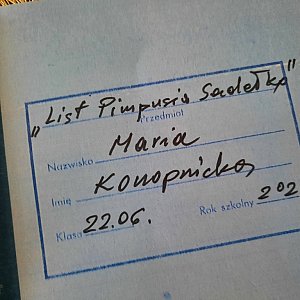 „List Pimpusia Sadełko"
Przedmiot
Maria
Nazwisko
Konopnicka
Imię
Klasa 22.06. Rok szkolny 202